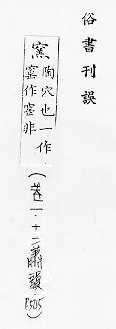 俗書刊誤
窯
陶穴也一作
窰作窑非
(卷一·十二蕭韻 P505)